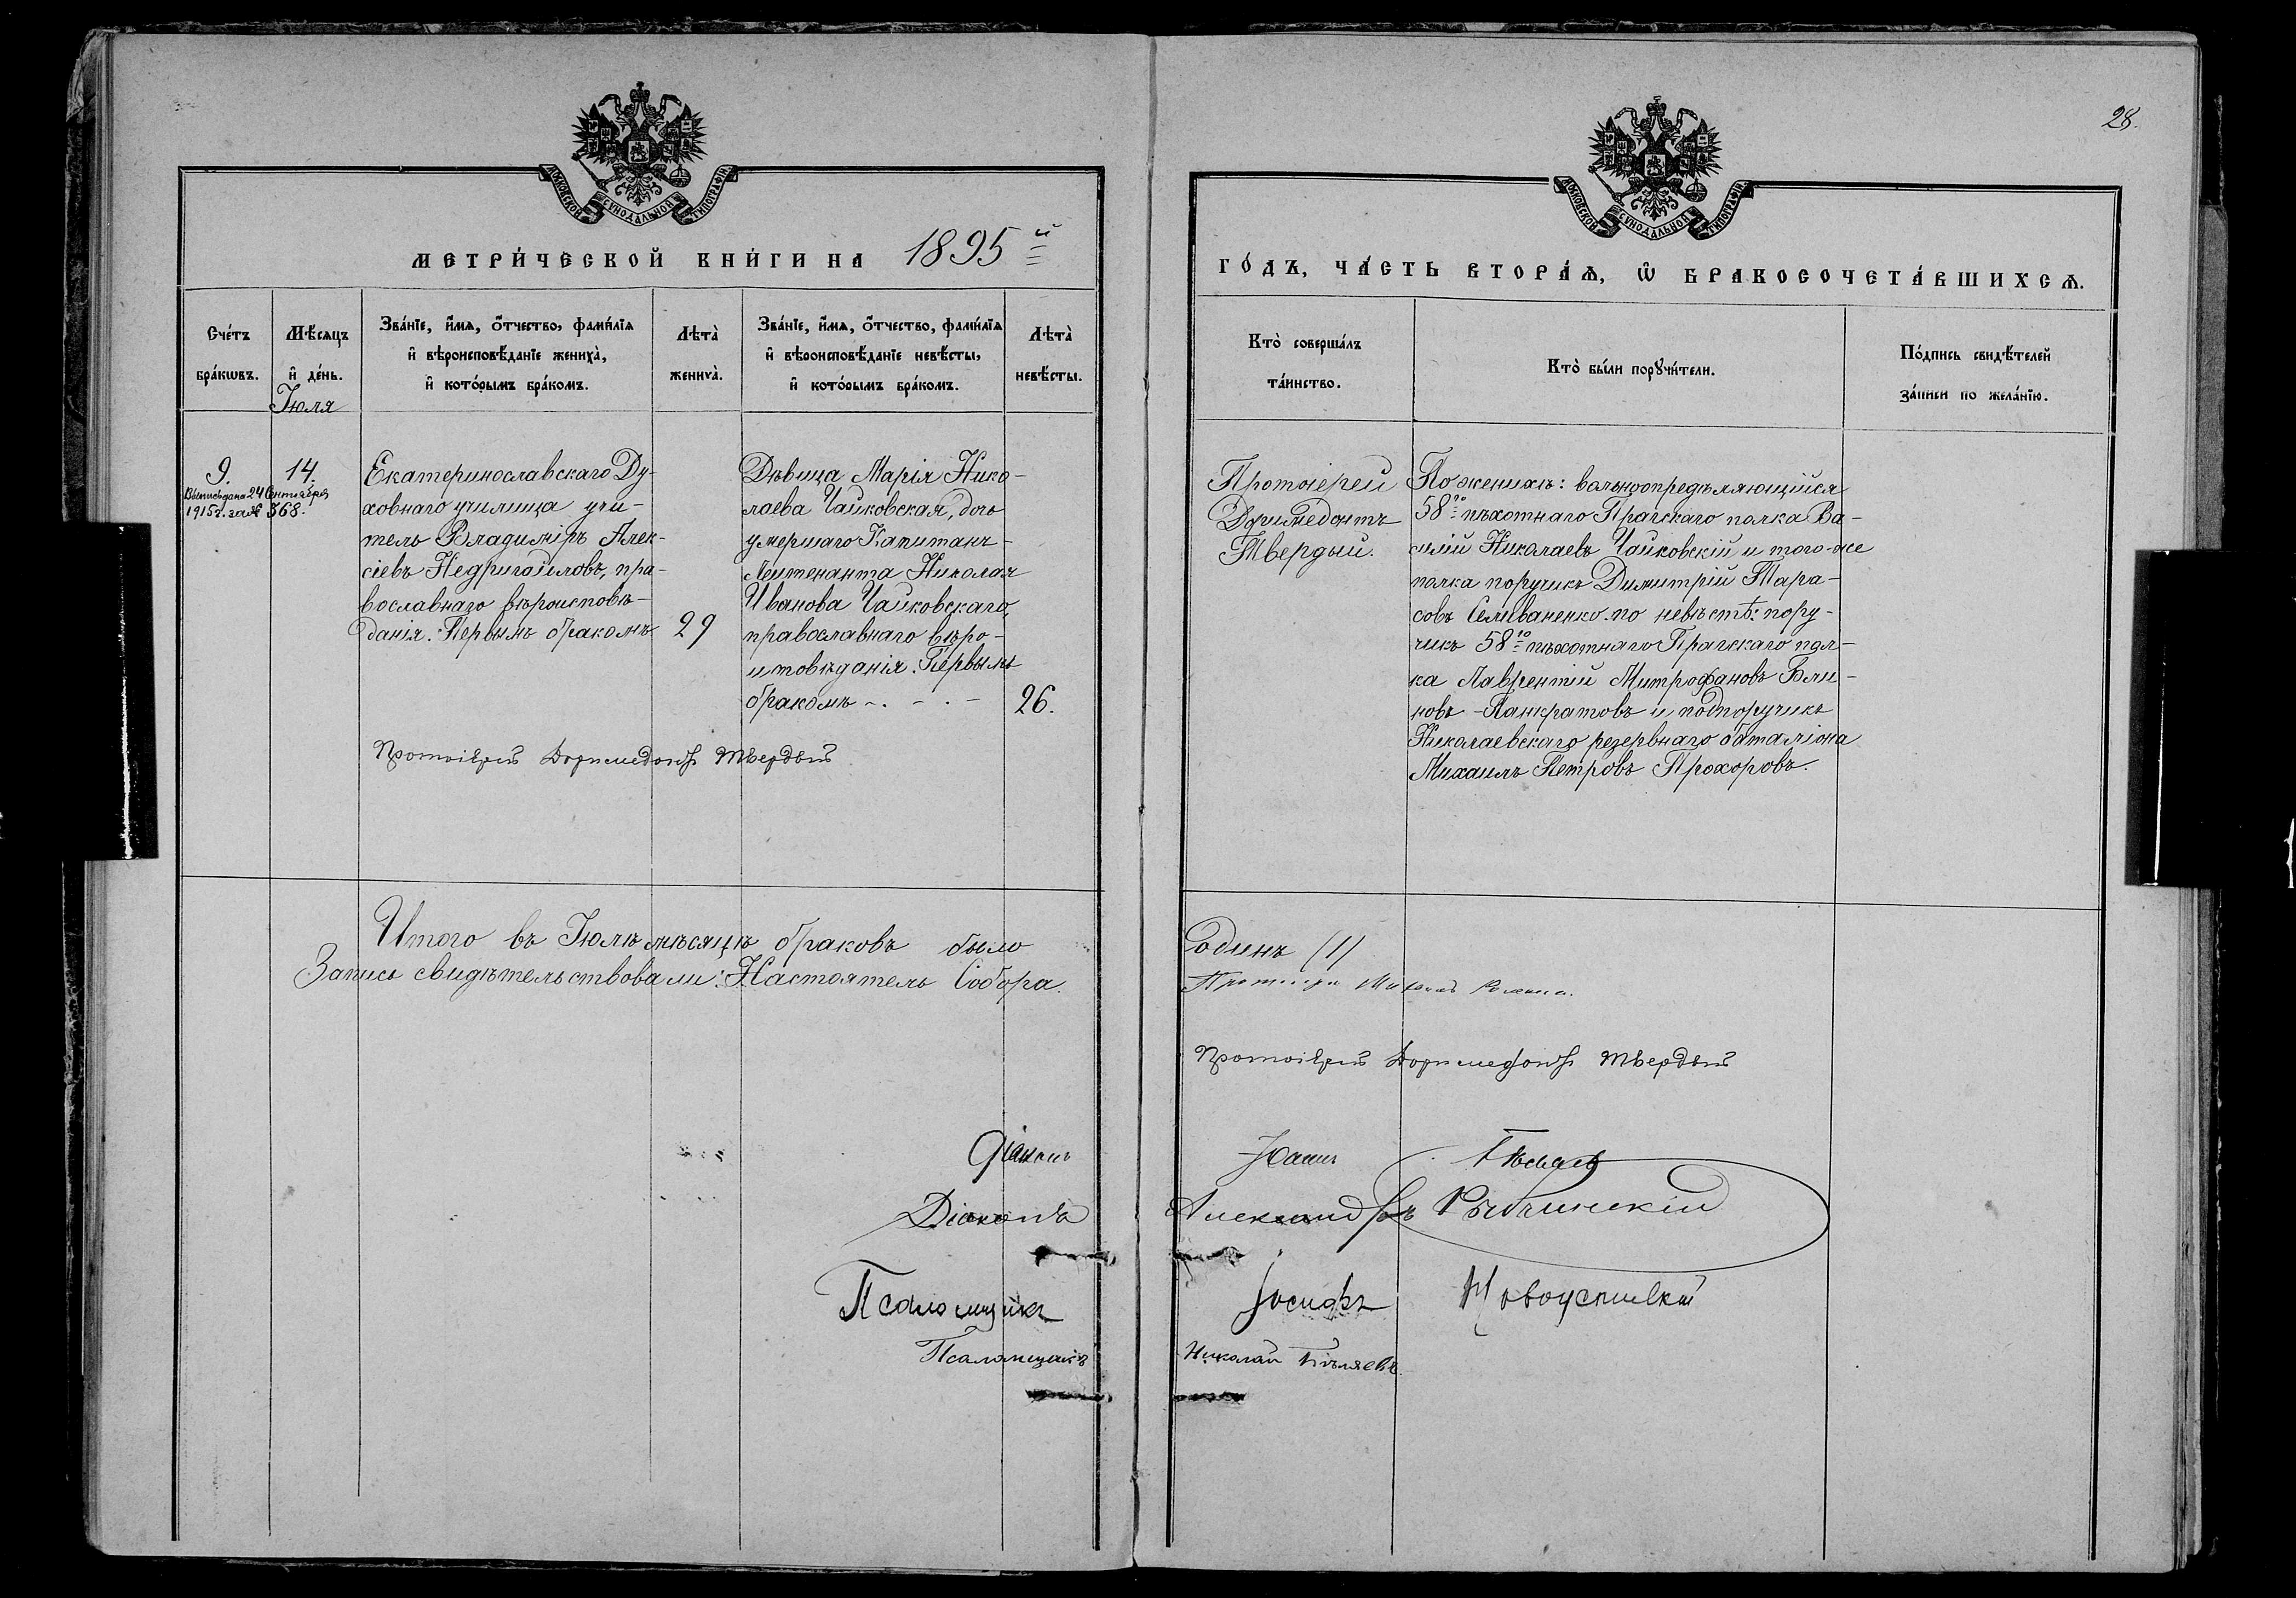 28.
МОСКОВСКОЙ СѴНОДАЛЬНОЙ ТИПОГРАФІИ
МОСКОВСКОЙ СѴНОДАЛЬНОЙ ТИПОГРАФІИ
МЕТРИ́ЧЕСКОЙ КНИ́ГИ НА 1895й
ГО́ДЪ, ЧА́СТЬ ВТОРА́Ѧ, Ѽ БРАКОСОЧЕТА́ВШИХСѦ.
Сче́тъ
бра́кѡвъ.
Мѣ́сѧцъ
и҆ де́нь.
Іюля
Зва́нїе, и҆́мѧ, ѻ҆́тчество, фами́лїѧ
и҆ вѣроисповѣ́данїе жениха̀,
и҆ кото́рымъ бра́комъ.
Лѣта̀
жениха̀.
Зва́нїе, и҆́мѧ, ѻ҆́тчество, фами́лїѧ
и҆ вѣроисповѣ́данїе невѣ́сты,
и҆ кото́рымъ бра́комъ.
Лѣта̀
невѣ́сты.
Кто̀ соверша́лъ
та́инство.
Кто̀ бы́ли порꙋчи́тели.
По́дпись свидѣ́телей
за́писи по жела́нїю.
9.
Выпись дана 24 Сентября
1915 г. за № 568.
14.
Екатеринославскаго Ду-
ховнаго училища учи-
тель Владиміръ Алек-
сіевъ Недригайловъ, пра-
вославнаго вѣроисповѣ-
данія. Первымъ бракомъ
29
Дѣвица Марія Нико-
лаева Чайковская, дочь
умершаго Капитанъ-
Лейтенанта Николая
Иванова Чайковскаго,
православнаго вѣро-
исповѣданія. Первымъ
бракомъ
26.
Протоіерей Доримедонтъ Твердый
Протоіерей
Доримедонтъ
Твердый.
По женихѣ: вольноопредѣляющійся
58го пѣхотнаго Прагскаго полка Ва-
силій Николаевъ Чайковскій и того-же
полка поручикъ Димитрій Тара-
совъ Селиваненко. по невѣстѣ: пору-
чикъ 58го пѣхотнаго Прагскаго пол-
ка Лаврентій Митрофановъ Бли-
новъ-Панкратовъ и подпоручикъ
Николаевскаго резервнаго баталіона
Михаилъ Петровъ Прохоровъ.
Итого въ Іюлѣ мѣсяцѣ браковъ было
одинъ (1)
Запись свидѣтельствовали: Настоятель Собора.
Протоіерей
Протоіерей Доримедонтъ Твердый
Діаконъ
Іоаннъ
Діаконъ
Александръ Рыбчинскій
Псаломщикъ
Іосифъ
Псаломщикъ
Николай Бѣляевъ.